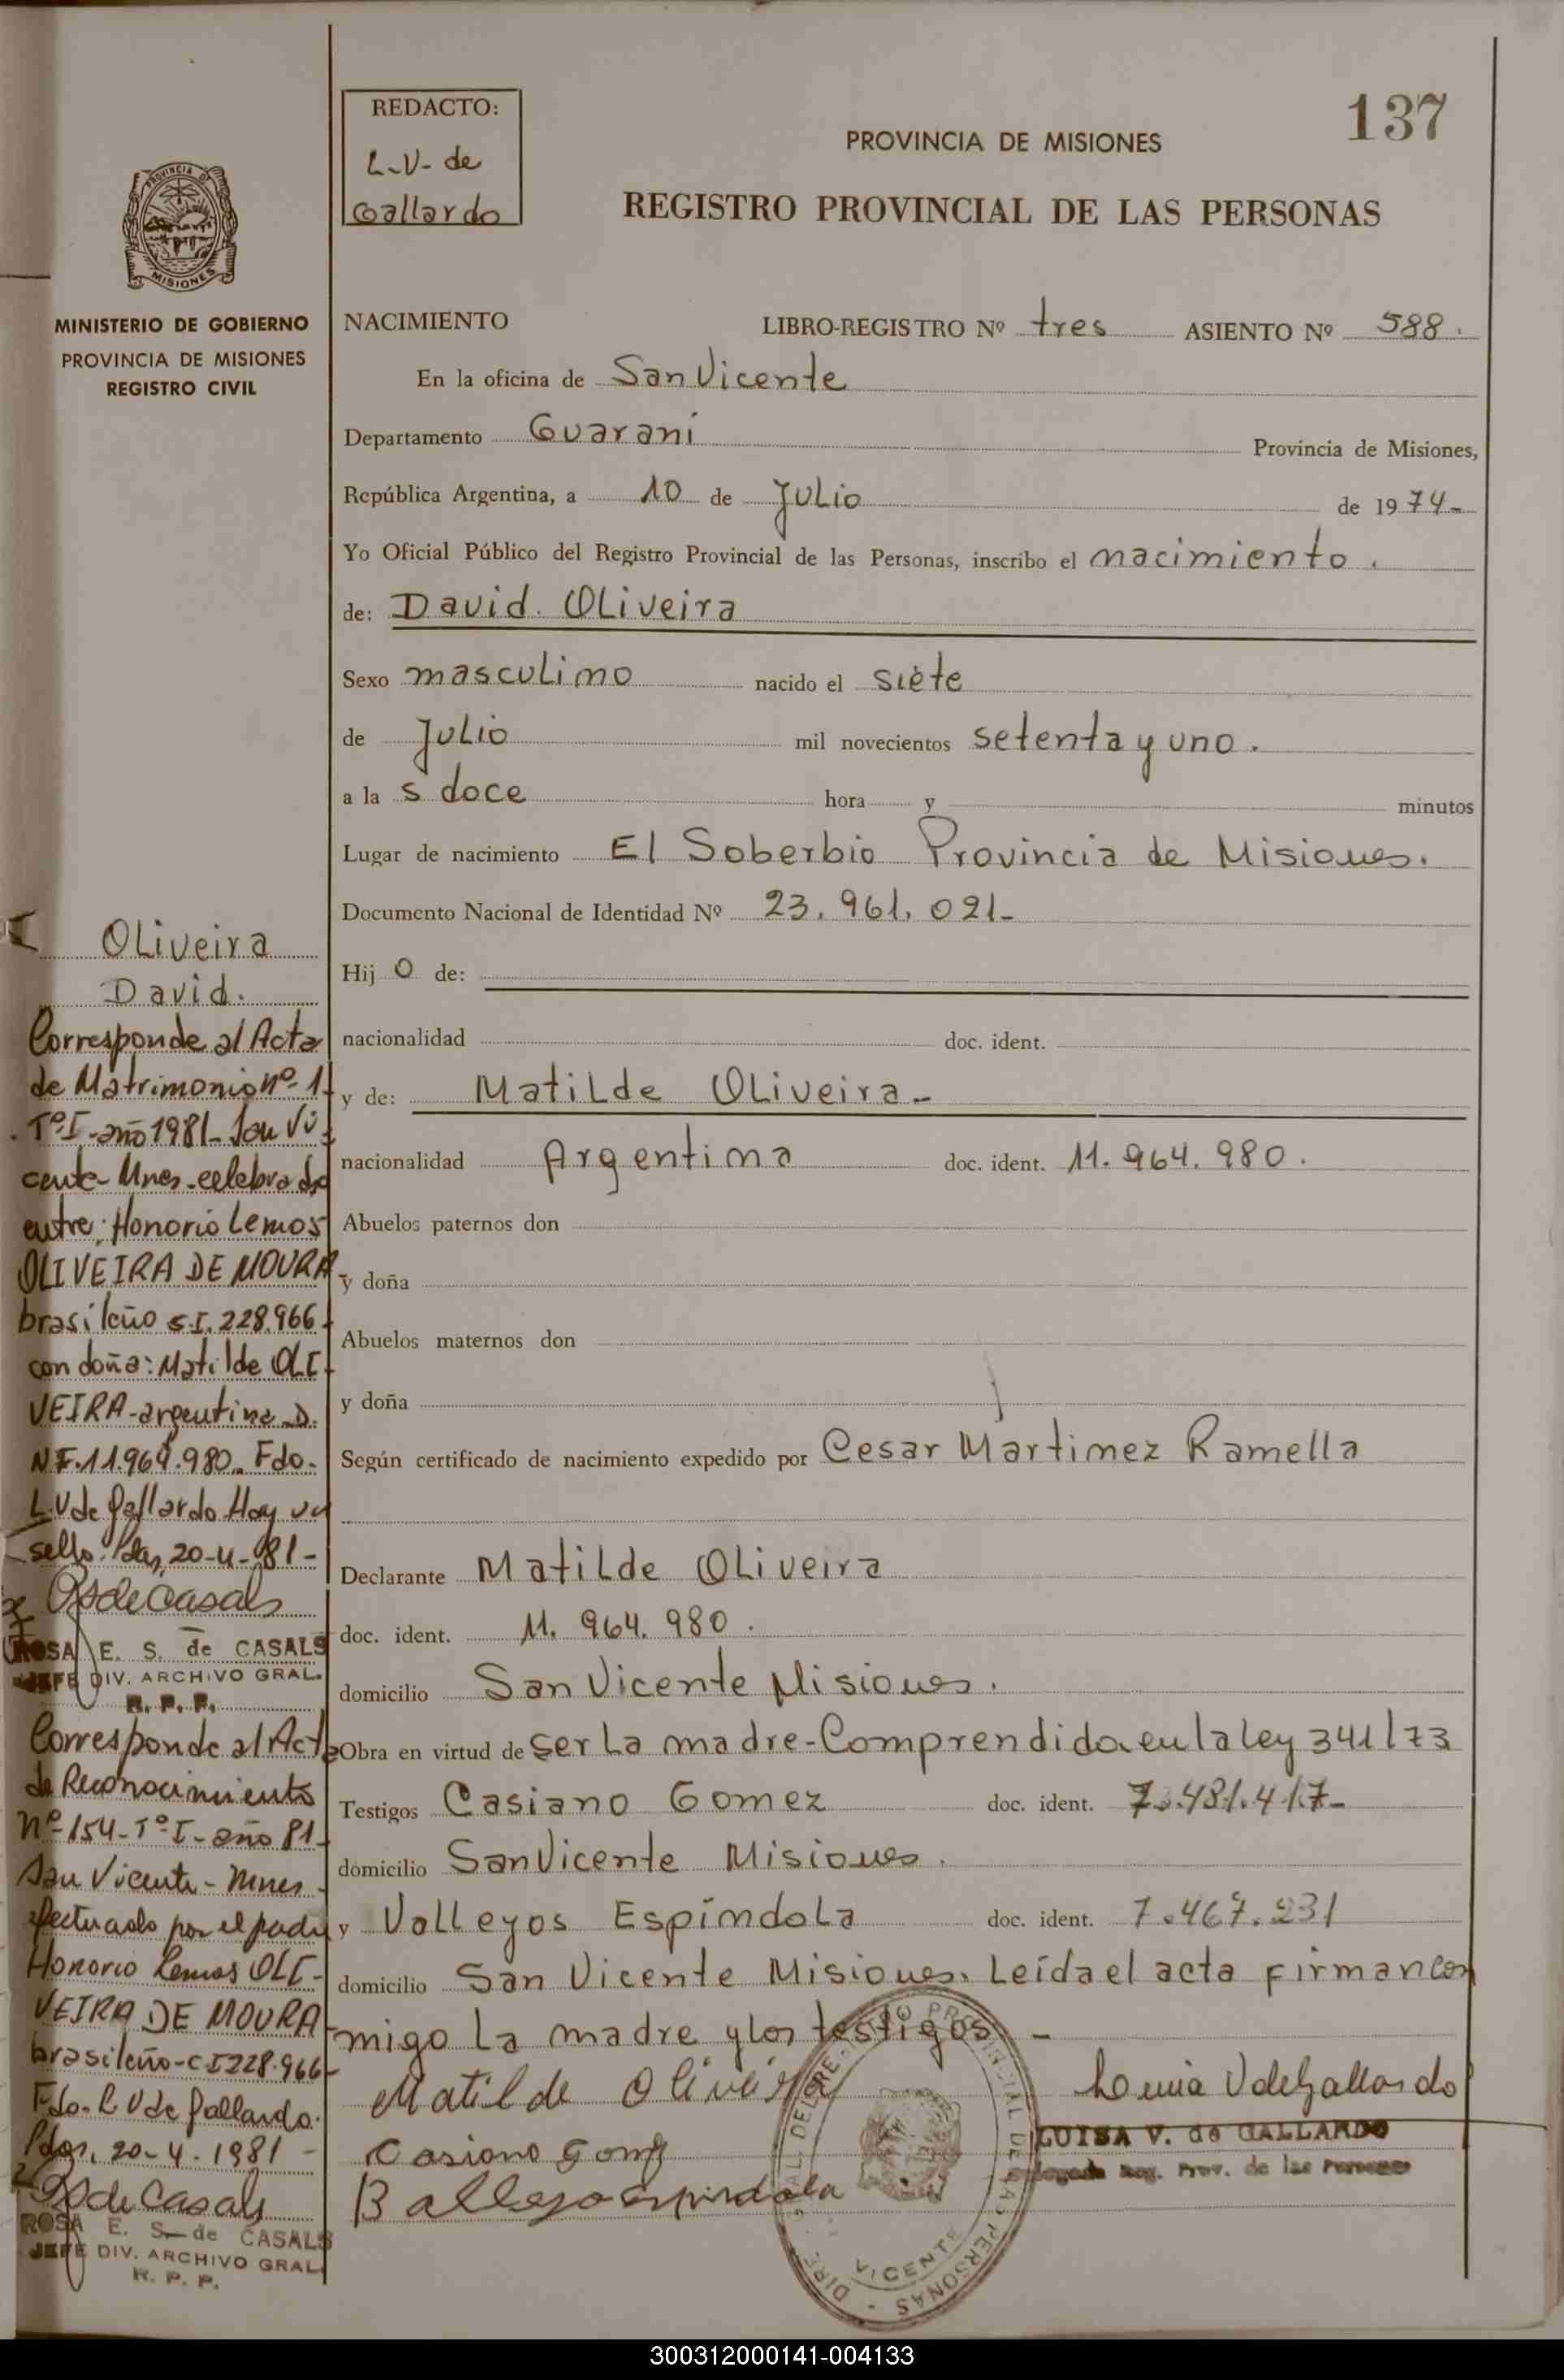 137
REDACTO:
L.V. de
Gallardo
PROVINCIA DE MISIONES
REGISTRO PROVINCIAL DE LAS PERSONAS
PROVINCIA DE
MISIONES
MINISTERIO DE GOBIERNO
PROVINCIA DE MISIONES
REGISTRO CIVIL
NACIMIENTO LIBRO-REGISTRO Nº tres ASIENTO Nº 588.
En la oficina de San Vicente
Departamento Guaraní Provincia de Misiones,
República Argentina, a 10 de Julio de 1974-
Yo Oficial Público del Registro Provincial de las Personas, inscribo el nacimiento.
de: David. Oliveira
Sexo masculino nacido el siete
de Julio mil novecientos setenta y uno.
a la s doce hora y minutos
Lugar de nacimiento El Soberbio Provincia de Misiones.
Documento Nacional de Identidad Nº 23.961.021-
Hij o de:
nacionalidad doc. ident.
y de: Matilde Oliveira-
nacionalidad Argentina doc. ident. 11.964.980.
Abuelos paternos don
y doña
Abuelos maternos don
y doña
Según certificado de nacimiento expedido por Cesar Martinez Ramella
Declarante Matilde Oliveira
doc. ident. 11.964.980.
domicilio San Vicente Misiones.
Obra en virtud de ser la madre-Comprendida en la ley 341/73
Testigos Casiano Gomez doc. ident. 7.481.417-
domicilio San Vicente Misiones.
y Valleyos Espíndola doc. ident. 7.467.231
domicilio San Vicente Misiones. Leída el acta firman con
migo la madre y los testigos. -
Matilde Oliveira
Casiano Gomz
Ballejo Espindola
Luisa V de Gallardo
LUISA V. de GALLARDO
Delegada Reg. Prov. de las Personas
VICENTE
Oliveira
David.
Corresponde al Acta
de Matrimonio nº-1-
Tº I-año 1981-San Vi-
cente-Mnes-celebrado
entre: Honorio Lemos
OLIVEIRA DE MOURA
brasileño C.I. 228.966-
con doña: Matilde OLI-
VEIRA-argentina-D.
N I.11.964.980. Fdo.
L.V de Gallardo Hay un
sello. Pdas, 20-4-81-
RSdeCasals
ROSA E. S. de CASALS
JEFE DIV. ARCHIVO GRAL.
R. P. P.
Corresponde al Acta
de Reconocimiento
nº-154-Tº I-año 81-
San Vicente-Mnes-
efectuado por el padre
Honorio Lemos OLI-
VEIRA DE MOURA-
brasileño-C I 228.966-
Fdo. L V de Gallardo.
Pdas, 20-4-1981-
RSdeCasals
ROSA E. S. de CASALS
JEFE DIV. ARCHIVO GRAL.
R. P. P.
300312000141-004133